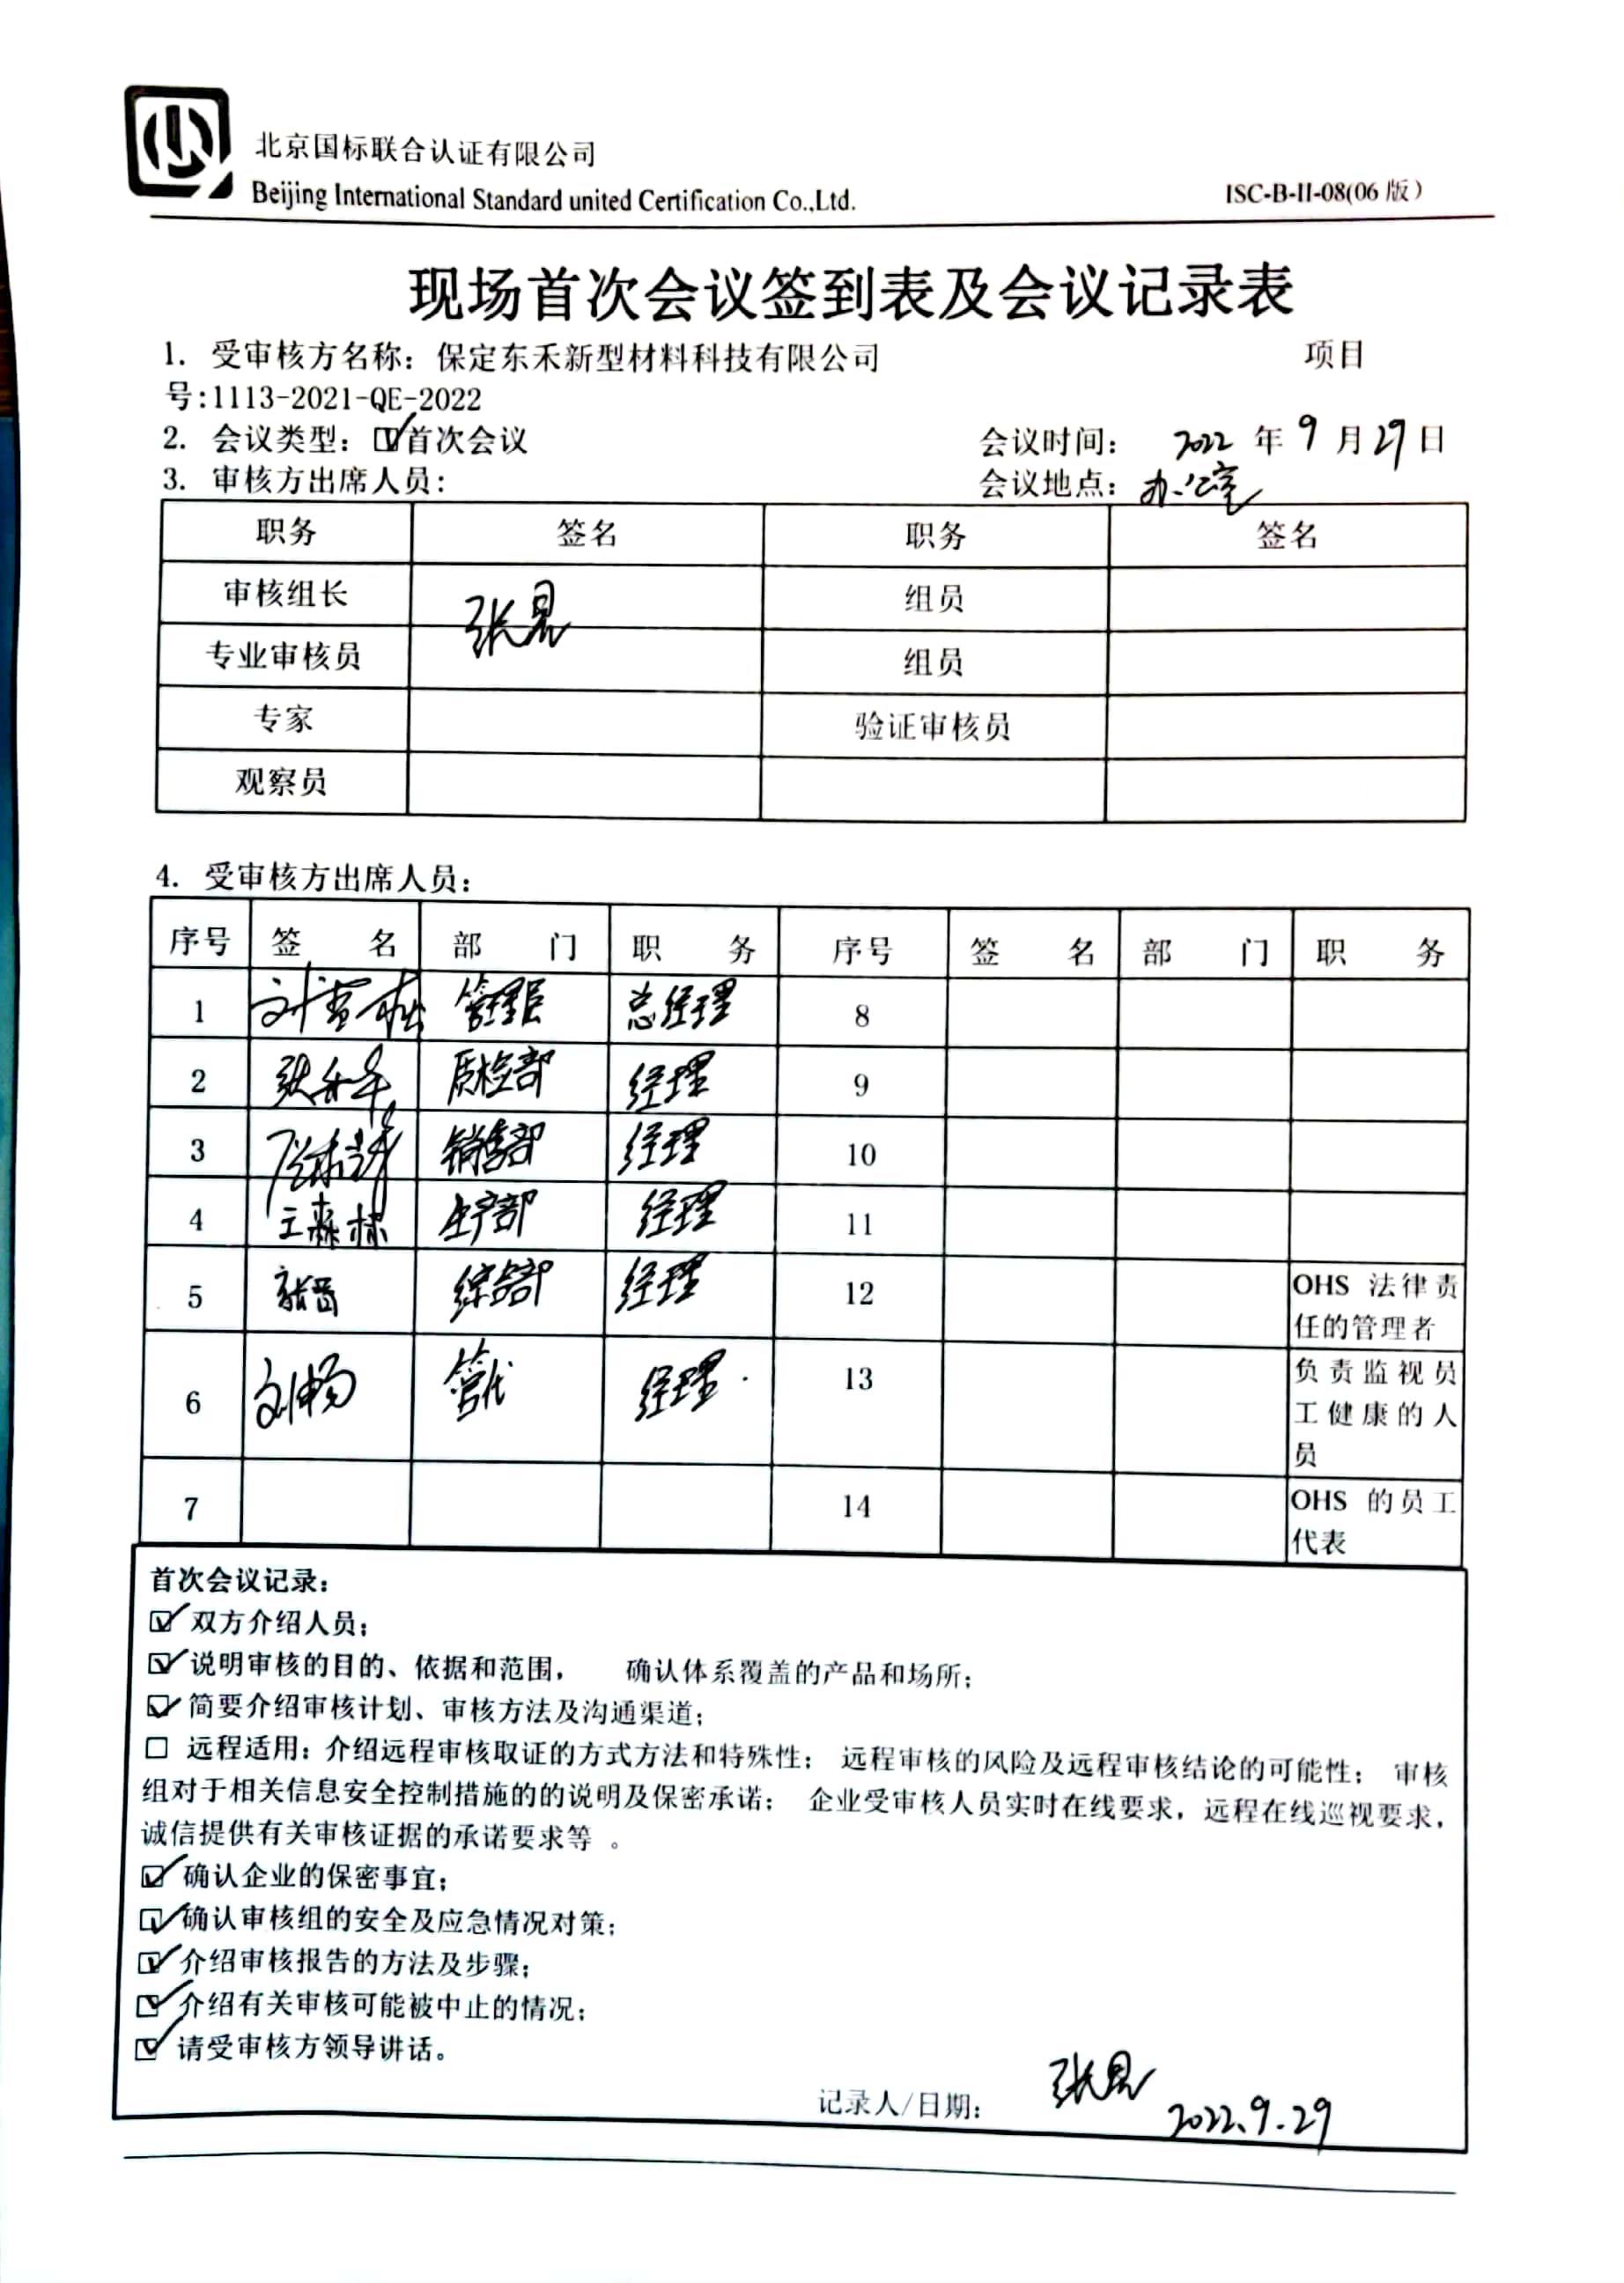 北京国标联合认证有限公司
Beijing International Standard united Certification Co.,Ltd.
ISC-B-II-08(06 版)
现场首次会议签到表及会议记录表
1. 受审核方名称：保定东禾新型材料科技有限公司 项目
号:1113-2021-QE-2022
2. 会议类型：☑首次会议 会议时间： 2022 年 9 月 29 日
3. 审核方出席人员： 会议地点：办公室
职务 签名 职务 签名
审核组长 组员
专业审核员 组员
专家 验证审核员
观察员
4. 受审核方出席人员：
序号 签 名 部 门 职 务 序号 签 名 部 门 职 务
1 管理层 总经理 8
2 质检部 经理 9
3 销售部 经理 10
4 王森林 生产部 经理 11
5 综合部 经理 12 OHS 法律责
任的管理者
6 刘畅 管代 经理 13 负责监视员
工健康的人
员
7 14 OHS 的员工
代表
首次会议记录：
☑ 双方介绍人员；
☑ 说明审核的目的、依据和范围， 确认体系覆盖的产品和场所；
☑ 简要介绍审核计划、审核方法及沟通渠道；
□ 远程适用：介绍远程审核取证的方式方法和特殊性； 远程审核的风险及远程审核结论的可能性； 审核
组对于相关信息安全控制措施的的说明及保密承诺； 企业受审核人员实时在线要求，远程在线巡视要求，
诚信提供有关审核证据的承诺要求等 。
☑ 确认企业的保密事宜；
☑ 确认审核组的安全及应急情况对策；
☑ 介绍审核报告的方法及步骤；
☑ 介绍有关审核可能被中止的情况；
☑ 请受审核方领导讲话。
记录人/日期：
2022.9.29